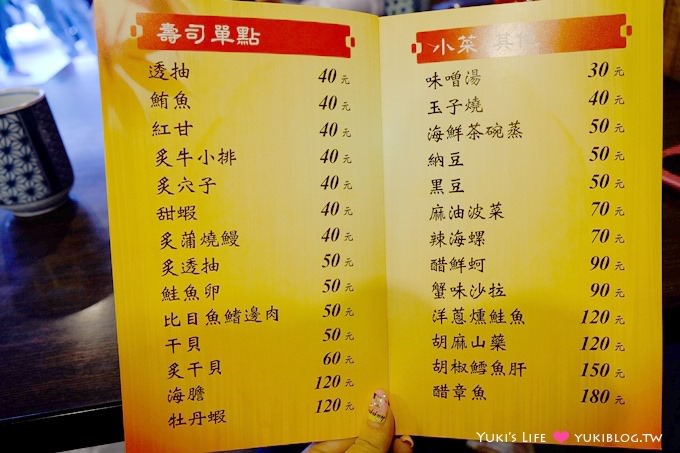 壽司單點
透抽 40元
鮪魚 40元
紅甘 40元
炙牛小排 40元
炙穴子 40元
甜蝦 40元
炙蒲燒鰻 40元
炙透抽 50元
鮭魚卵 50元
比目魚鰭邊肉 50元
干貝 50元
炙干貝 60元
海膽 120元
牡丹蝦 120元
小菜 其他
味噌湯 30元
玉子燒 40元
海鮮茶碗蒸 50元
納豆 50元
黑豆 50元
麻油波菜 70元
辣海螺 70元
醋鮮蚵 90元
蟹味沙拉 90元
洋蔥燻鮭魚 120元
胡麻山藥 120元
胡椒鱈魚肝 150元
醋章魚 180元
YUKI'S LIFE ♥ YUKIBLOG.TW